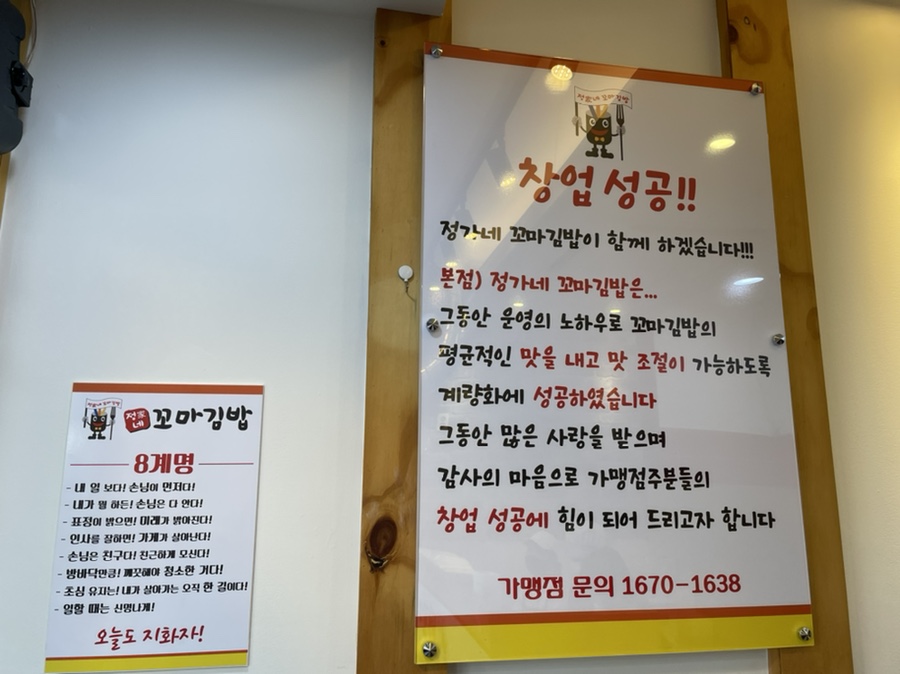 정家네 꼬마김밥
8계명
- 내 일 보다! 손님이 먼저다!
- 내가 뭘 하든! 손님은 다 안다!
- 표정이 밝으면! 미래가 밝아진다!
- 인사를 잘하면! 가게가 살아난다!
- 손님은 친구다! 친근하게 모신다!
- 방바닥만큼! 깨끗해야 청소한 거다!
- 초심 유지는! 내가 살아가는 오직 한 길이다!
- 일할 때는 신명나게!
오늘도 지화자!
정家네 꼬마김밥
창업 성공!!
정가네 꼬마김밥이 함께 하겠습니다!!!
본점) 정가네 꼬마김밥은...
그동안 운영의 노하우로 꼬마김밥의
평균적인 맛을 내고 맛 조절이 가능하도록
계량화에 성공하였습니다
그동안 많은 사랑을 받으며
감사의 마음으로 가맹점주분들의
창업 성공에 힘이 되어 드리고자 합니다
가맹점 문의 1670-1638